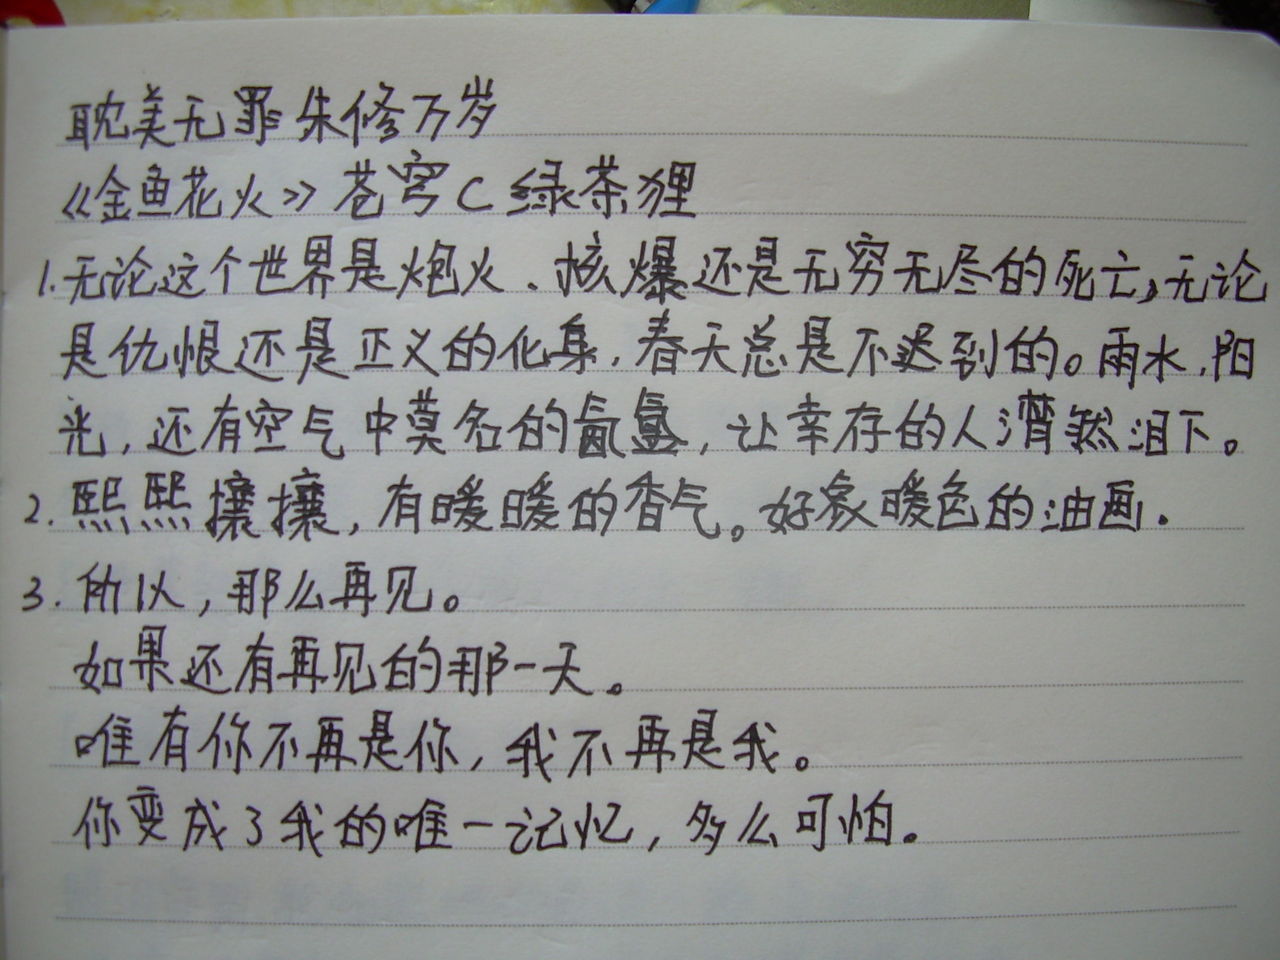 耽美无罪朱修万岁
《金鱼花火》苍穹C绿茶狸
1.无论这个世界是炮火、核爆还是无穷无尽的死亡,无论
是仇恨还是正义的化身,春天总是不迟到的。雨水,阳
光,还有空气中莫名的氤氲,让幸存的人潸然泪下。
2.熙熙攘攘,有暖暖的香气。好象暖色的油画.
3.所以,那么再见。
如果还有再见的那一天。
唯有你不再是你,我不再是我。
你变成了我的唯一记忆,多么可怕。